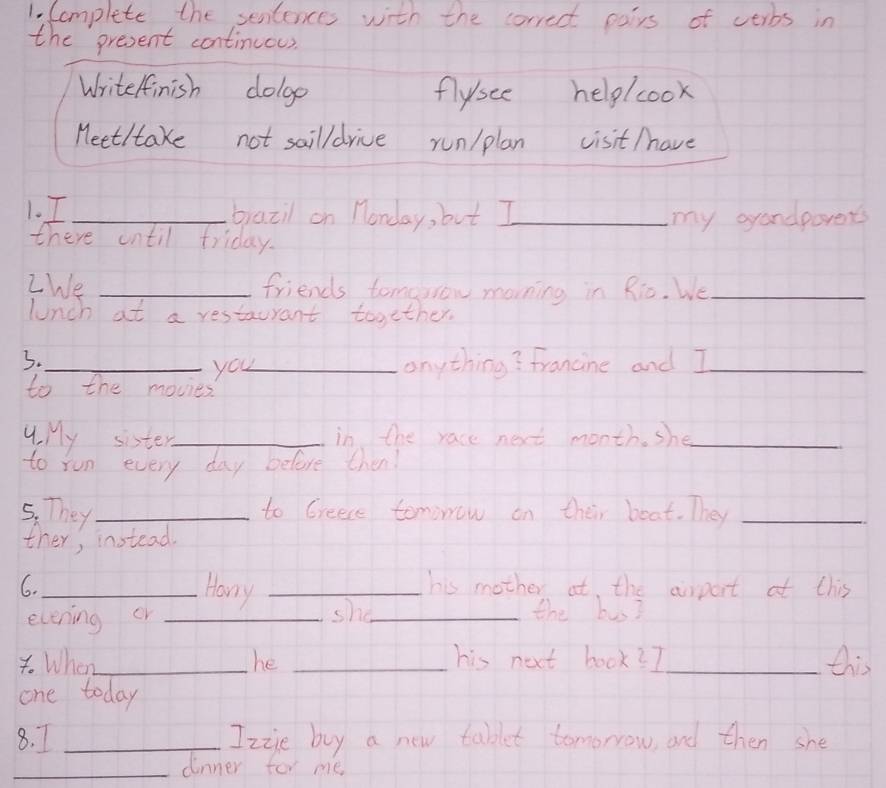 1. Complete the sentences with the correct pairs of verbs in
the present continuous.
Write/finish do/go fly/see help/cook
Meet/take not sail/drive run/plan visit/have
1. I ________ brazil on Monday, but I ________ my grandparents
there until friday.
2. We ________ friends tomorrow morning in Rio. We ________
lunch at a restaurant together.
3. ________ you ________ anything? Francine and I ________
to the movies
4. My sister ________ in the race next month. She ________
to run every day before then!
5. They ________ to Greece tomorrow on their boat. They ________
ther, instead.
6. ________ Harry ________ his mother at, the airport at this
evening or ________ she ________ the bus?
7. When ________ he ________ his next book? I ________ this
one today
8. I ________ Izzie buy a new tablet tomorrow, and then she
________ dinner for me.